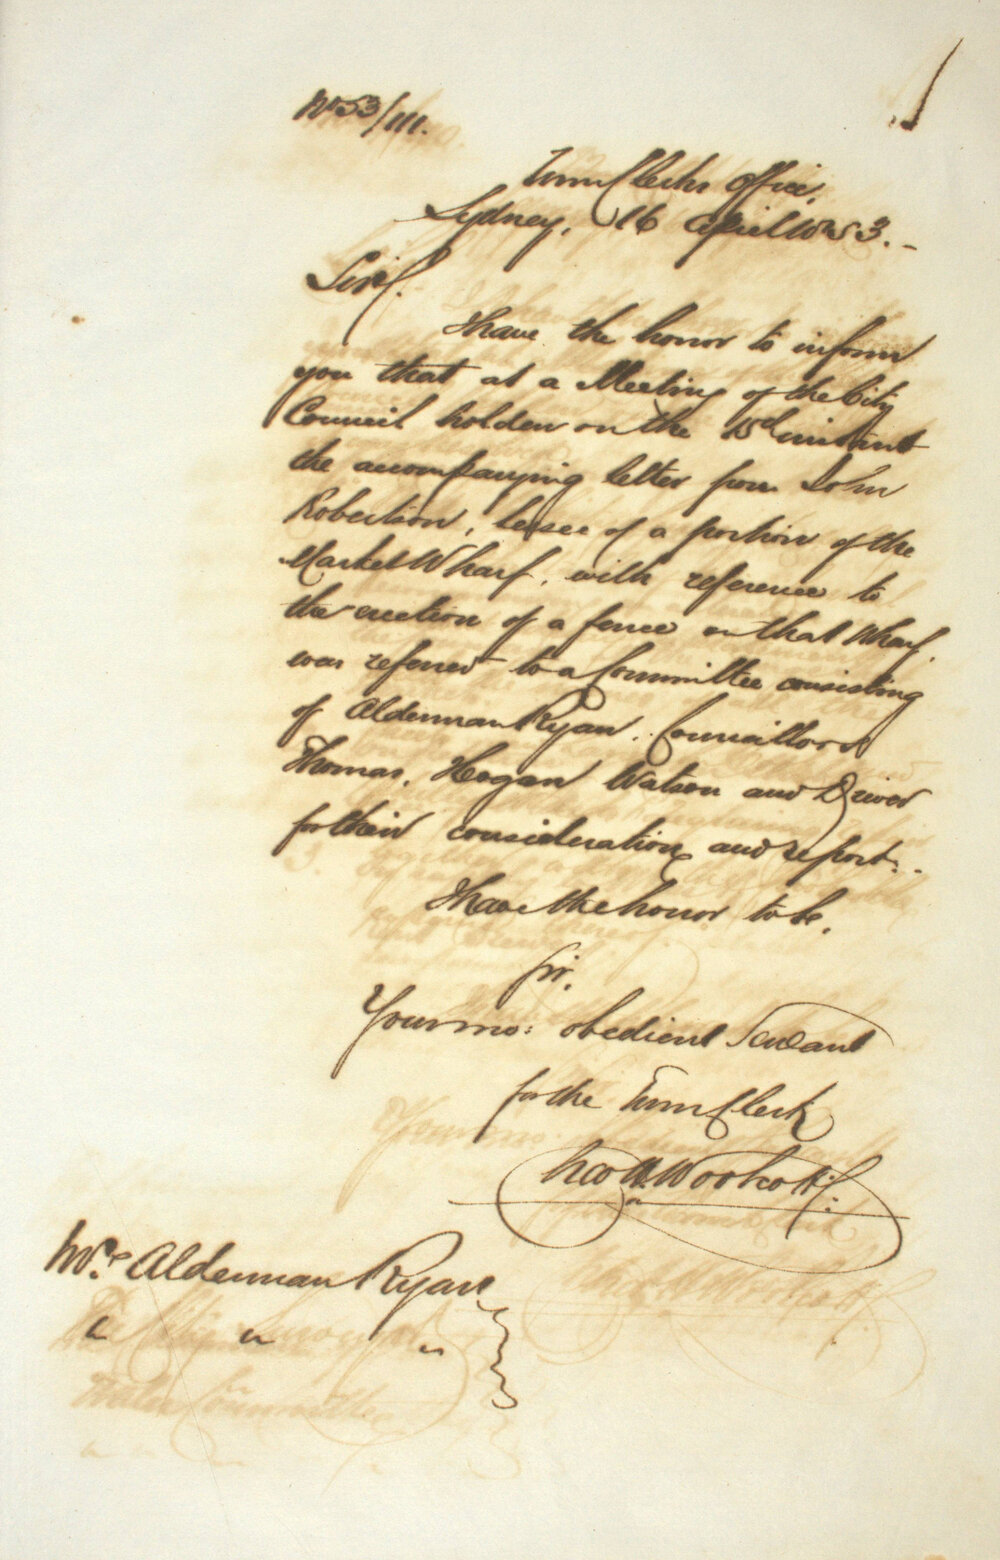 No 53/111.
Town Clerks Office,
Sydney, 16 April 1853.
Sir,
I have the honor to inform
you that at a Meeting of the City
Council holden on the 15th instant
the accompanying letter from John
Robertson, lessee of a portion of the
Market Wharf, with reference to
the erection of a fence on that Wharf,
was referred to a Committee consisting
of Alderman Ryan, Councillors
Thomas, Hogan Watson and Driver
for their consideration and report.
I have the honor to be,
Sir,
Your mo: obedient Servant
for the Town Clerk
Chas H. Woolcott
Mr. Alderman Ryan
" " "